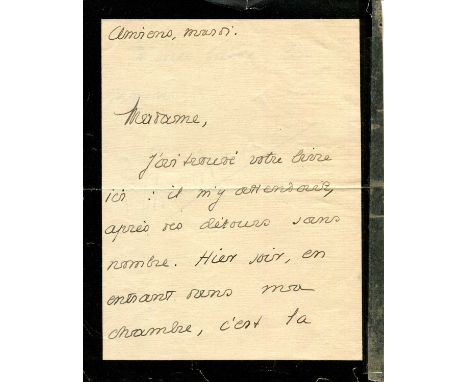 Amiens, mardi.
Madame,
J'ai trouvé votre livre
ici : il m'y attendait,
après des détours sans
nombre. Hier soir, en
entrant dans ma
chambre, c'est la